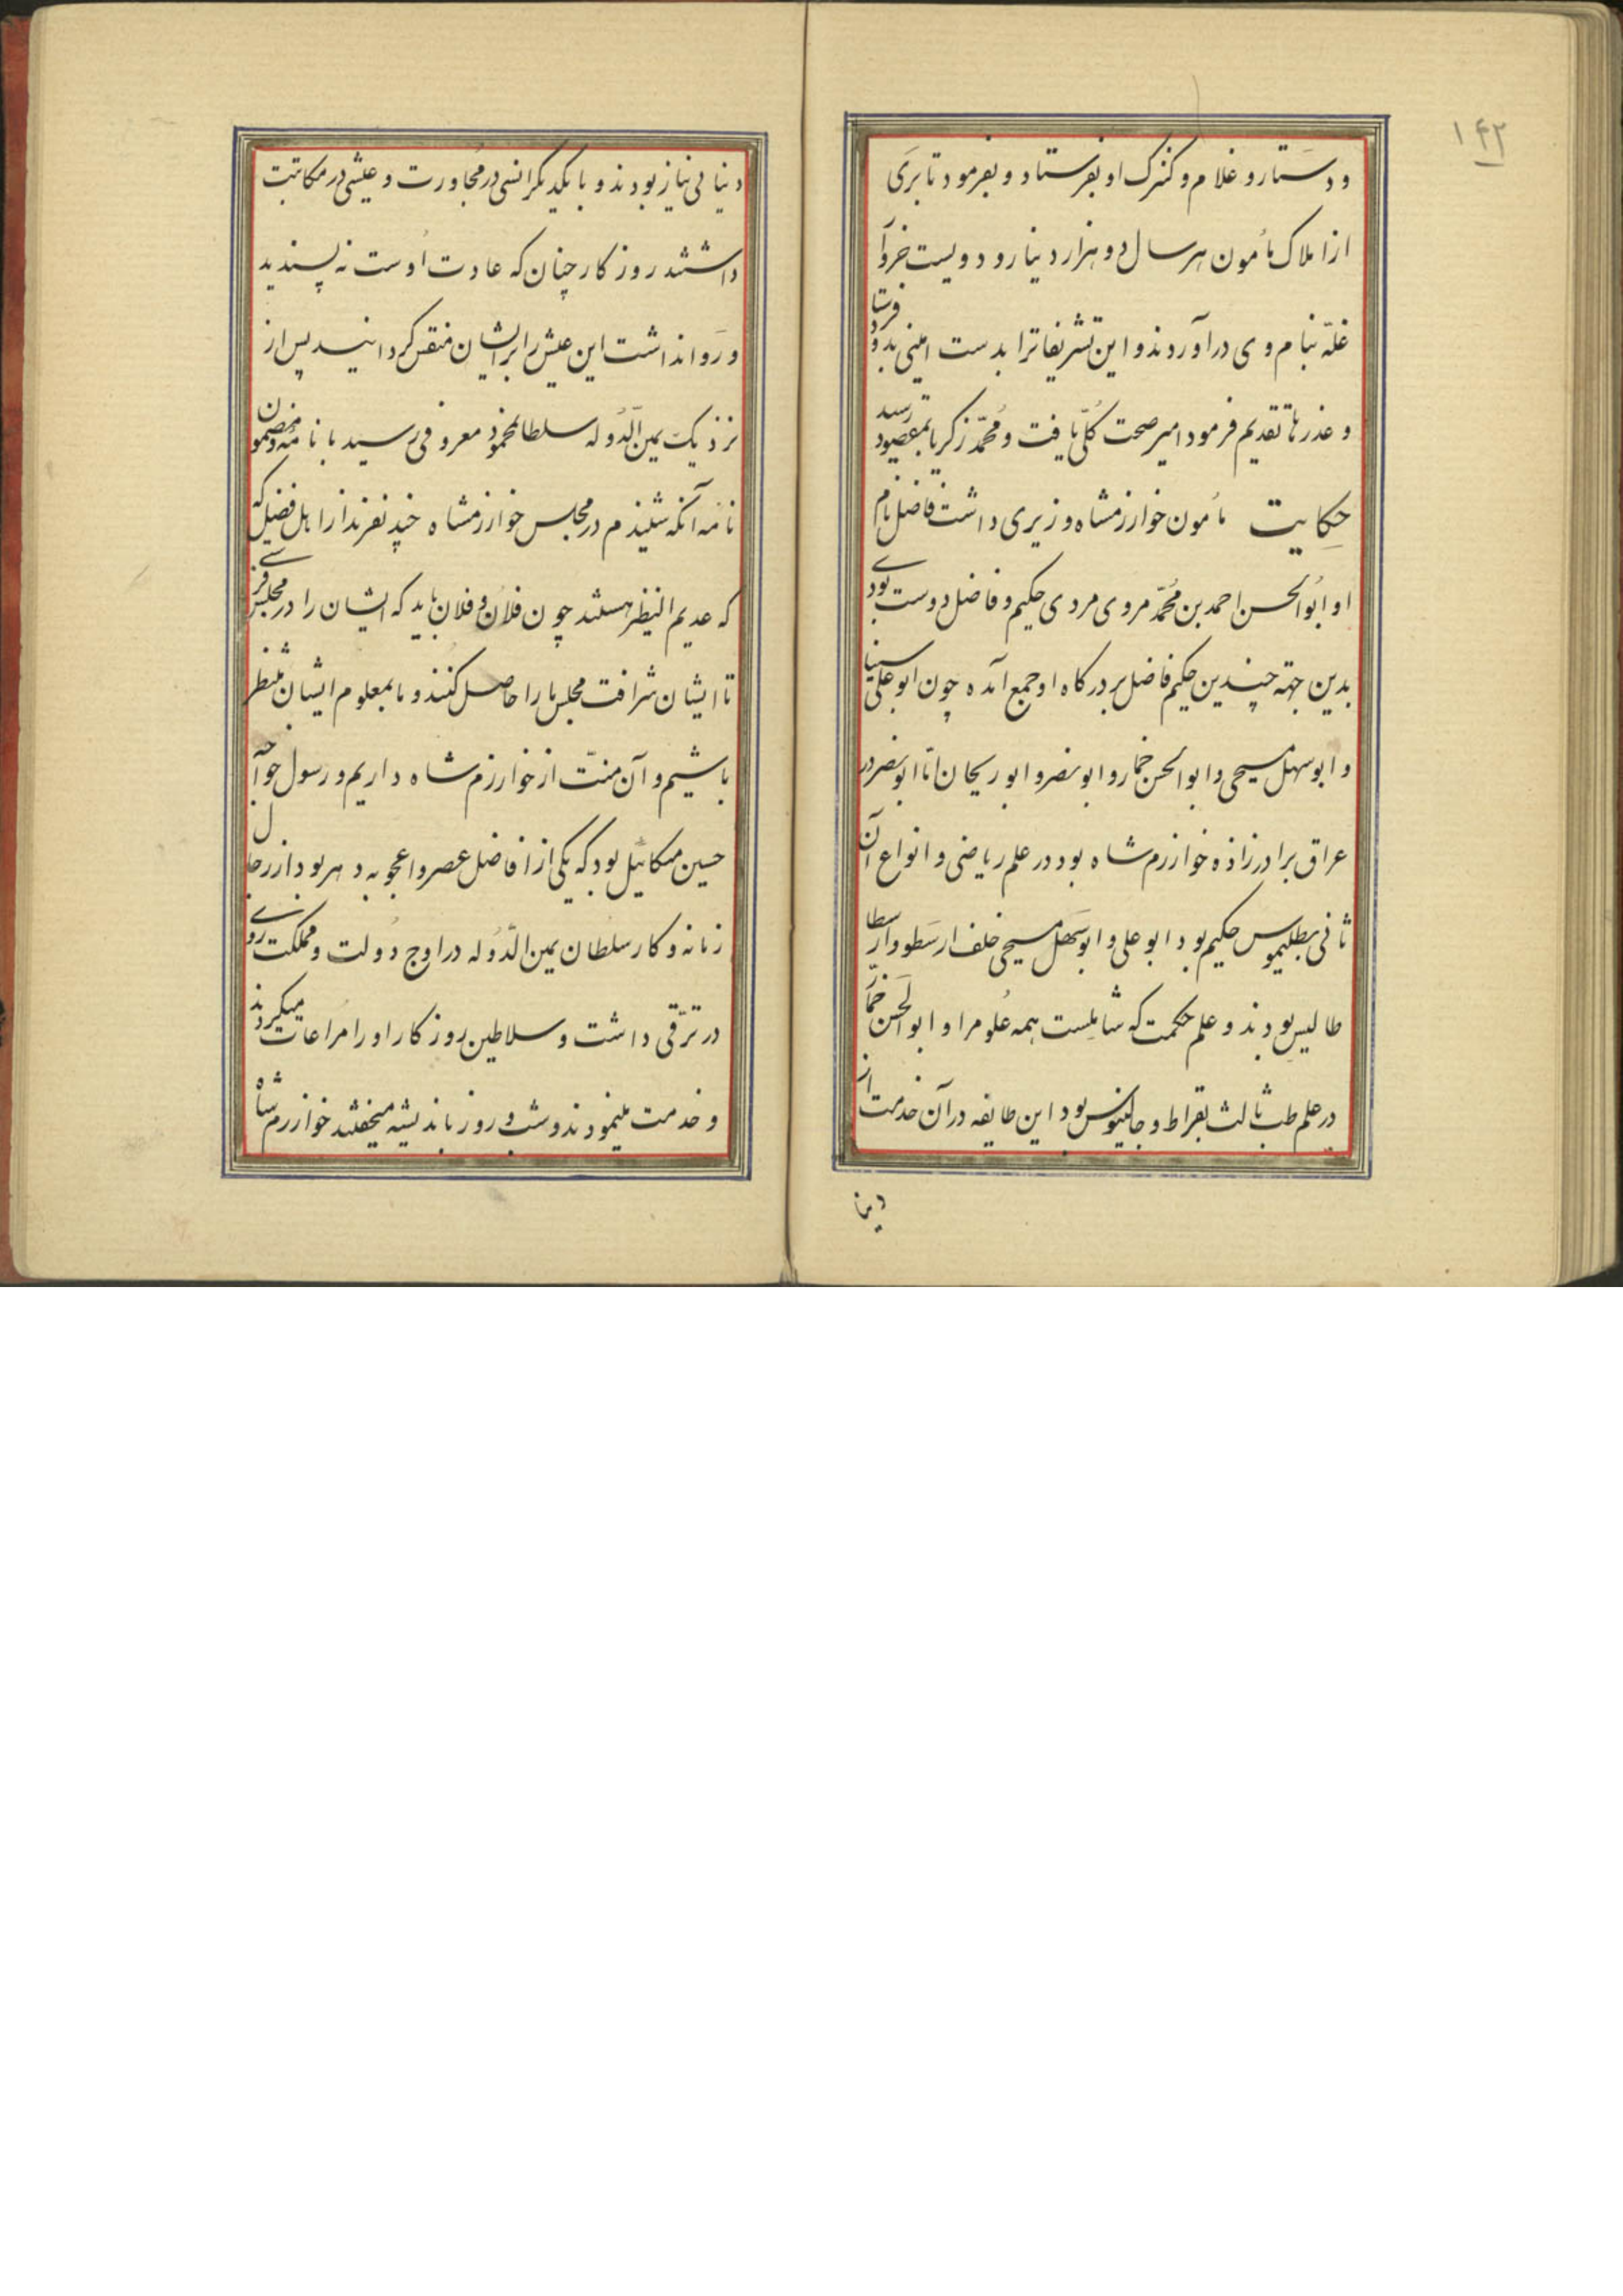 ۱۴۳
و دستار و غلام و کنیزک او بفرستاد و بفرمود تا بری
از املاک مأمون هر سال دو هزار دینار و دویست خروار
غلّه بنام وی درآوردند و این تشریفاترا بدست امینی بدو فرستاد
و عذرها تقدیم فرمود امیر صحت کلّی یافت و محمّد زکریا بمقصود رسید
حکایت مأمون خوارزمشاه وزیری داشت فاضل نام
او ابوالحسن احمد بن محمّد مروی مردی حکیم و فاضل دوست بودے
بدین جهة چندین حکیم فاضل بر درگاه او جمع آمده چون ابوعلی سینا
و ابوسهل مسیحی و ابوالحسن خمار و ابونصر و ابوریحان امّا ابونصر در
عراق برادرزاده خوارزم شاه بود در علم ریاضی و انواع آن
ثانی بطلیموس حکیم بود ابوعلی و ابوسهل مسیحی خلف ارسطو و ارسطا
طالیس بودند و علم حکمت که شاملست همه علوم را و ابوالحسن خمّار
در علم طب ثالث بقراط و جالینوس بود این طایفه در آن خدمت از
دنیا
دنیا بی نیاز بودند و با یکدیگر انسی در مجاورت و عیشی در مکاتبت
داشتند روزکار چنان که عادت اوست نه پسندید
و روا نداشت این عیش را بر ایشان منقص کردانید پس از
نزدیک یمین الدّوله سلطان محمود معروفی رسید با نامه و مضمون
نامه آنکه شنیدم در مجلس خوارزمشاه چند نفرند از اهل فضل که
که عدیم النظیر هستند چون فلان و فلان باید که ایشان را در مجلس فرستے
تا ایشان شرافت مجلس ما را حاصل کنند و ما بمعلوم ایشان منتظر
باشیم و آن منّت از خوارزم شاه داریم و رسول خواجه
حسین میکائیل بود که یکی از افاضل عصر و اعجوبه دهر بود از رجال
زمانه و کار سلطان یمین الدّوله در اوج دولت و مملکت روے
در ترقّی داشت و سلاطین روزکار او را مراعات میکردند
و خدمت مینمودند و شب و روز باندیشه میخفتند خوارزم شاه